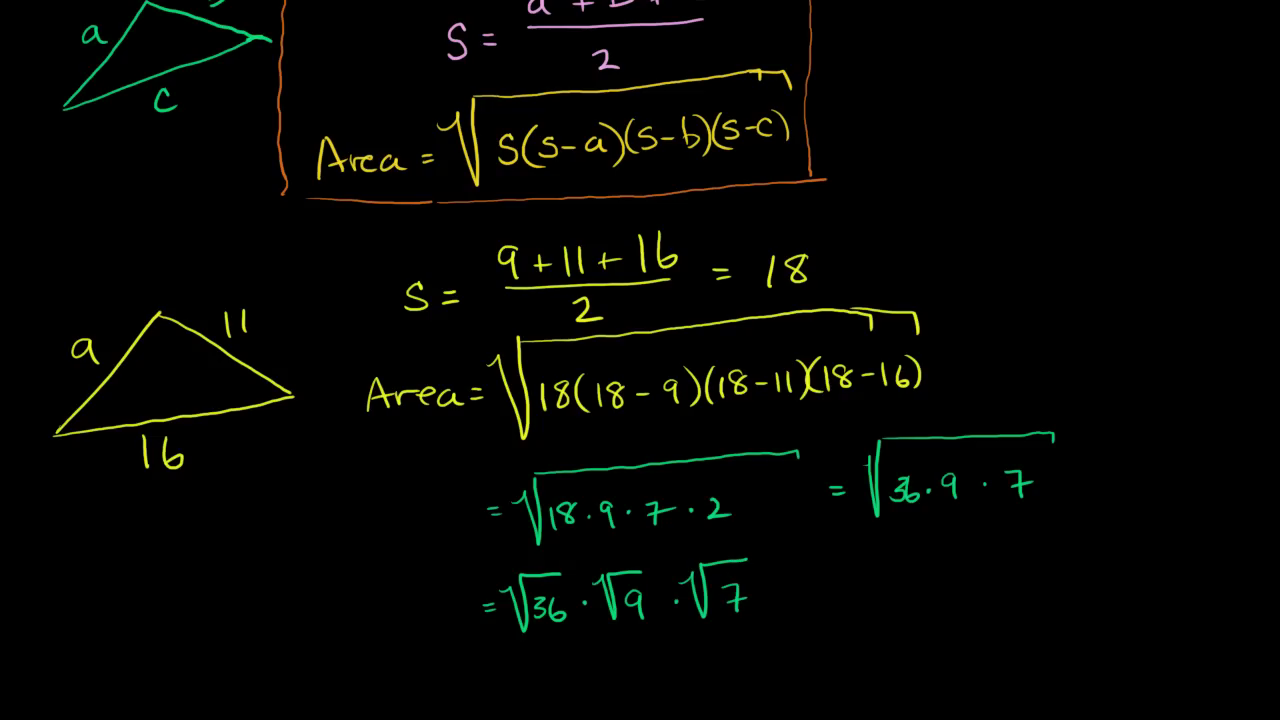 a
c
S = a + b + / 2
Area = √S(S-a)(S-b)(S-c)
S = 9 + 11 + 16 / 2 = 18
9
11
16
Area = √18(18-9)(18-11)(18-16)
= √18·9·7·2 = √36·9·7
= √36·√9·√7